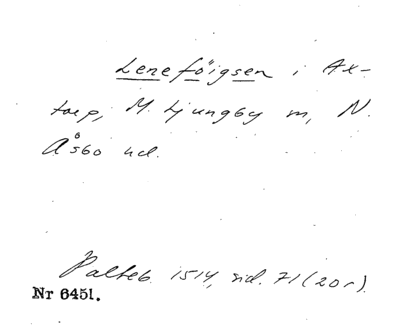 Leneföigsen i Ax-
torp, M. Ljungby m, N.
Åsbo hd.
Palteb. 1514, sid. 71 (20 r).
Nr 6451.